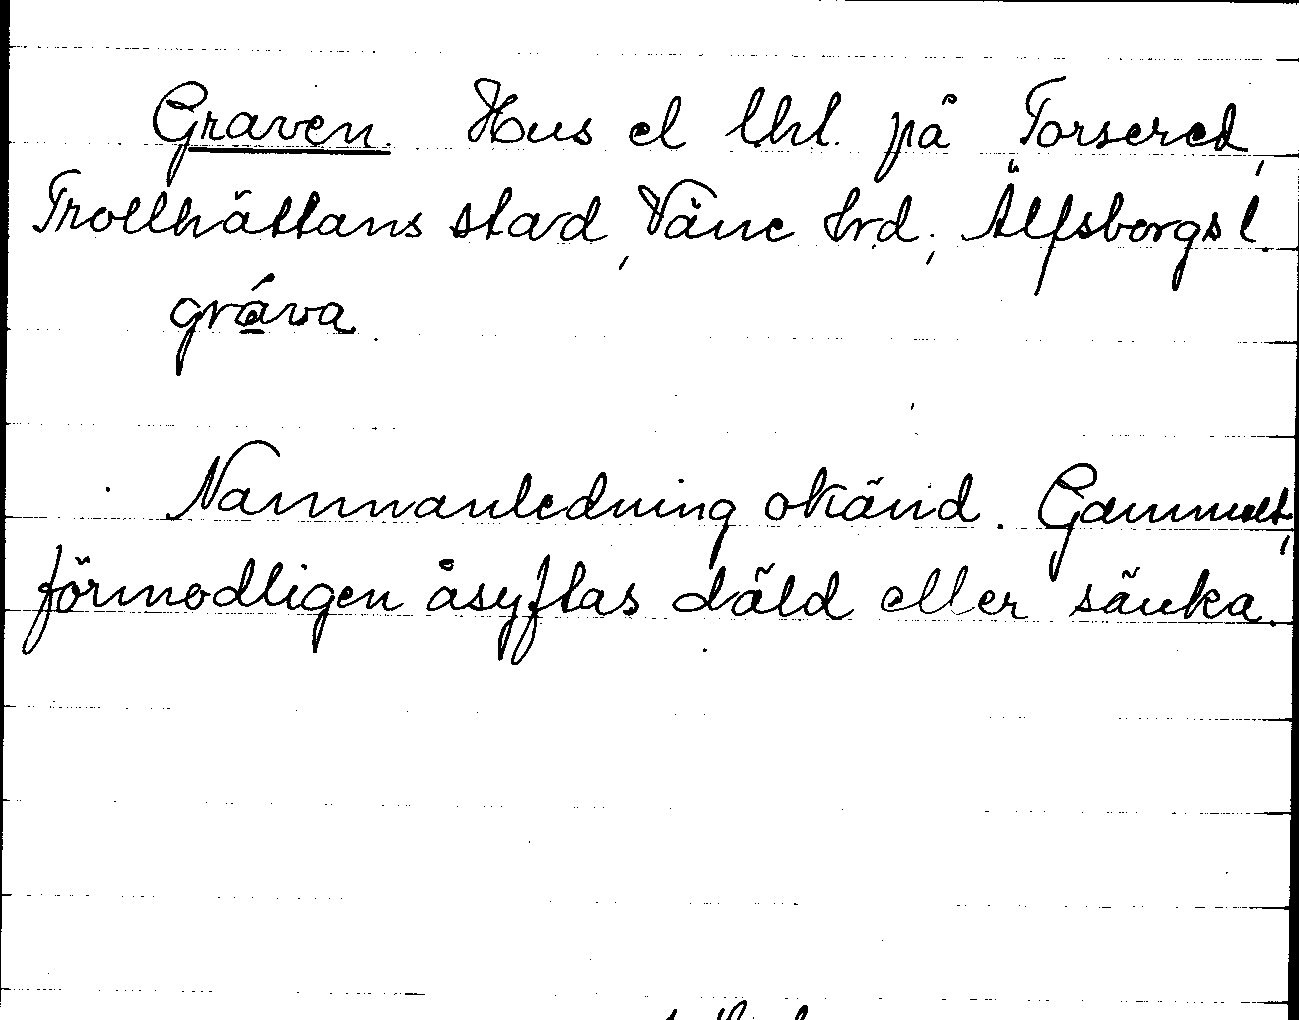 Graven. Hus el lht. på Torsered,
Trollhättans stad, Väne hrd, Älfsborgs l.
gráva
Namnanledning okänd. Gammalt,
förmodligen åsyftas däld eller sänka.